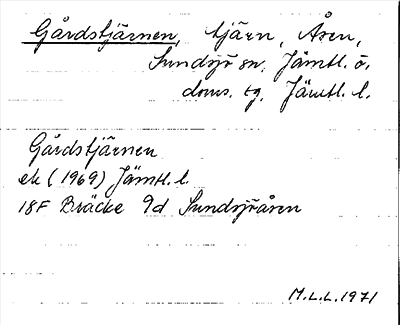 Gårdstjärnen, tjärn, Åsen,
Sundsjö sn. Jämtl. ö.
doms. tg. Jämtl. l.
Gårdstjärnen
ek (1969) Jämtl. l.
18F Bräcke 9d Sundsjöåsen
M.L.L. 1971